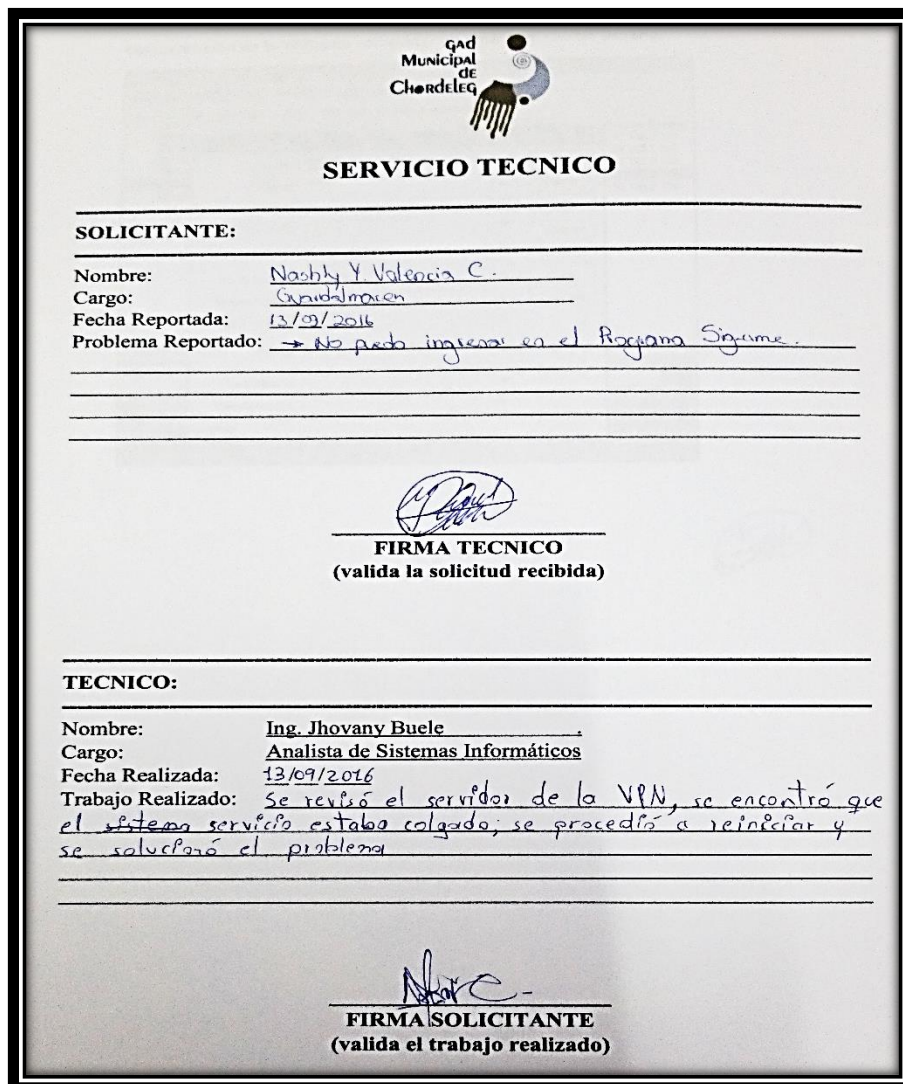 GAD
Municipal
de
Chordeleg
SERVICIO TECNICO
SOLICITANTE:
Nombre: Nashly Y. Valencia C.
Cargo: Guardalmacen
Fecha Reportada: 13/09/2016
Problema Reportado: → No puedo ingresar en el Programa Sigame.
FIRMA TECNICO
(valida la solicitud recibida)
TECNICO:
Nombre: Ing. Jhovany Buele .
Cargo: Analista de Sistemas Informáticos
Fecha Realizada: 13/09/2016
Trabajo Realizado: Se revisó el servidor de la VPN, se encontró que
el sistema servicio estaba colgado; se procedió a reiniciar y
se solucionó el problema
FIRMA SOLICITANTE
(valida el trabajo realizado)